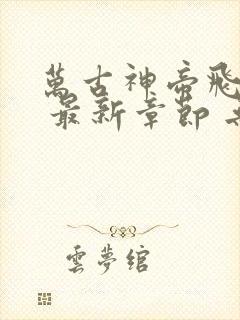 萬古神帝飛
最新章節
雲夢綰